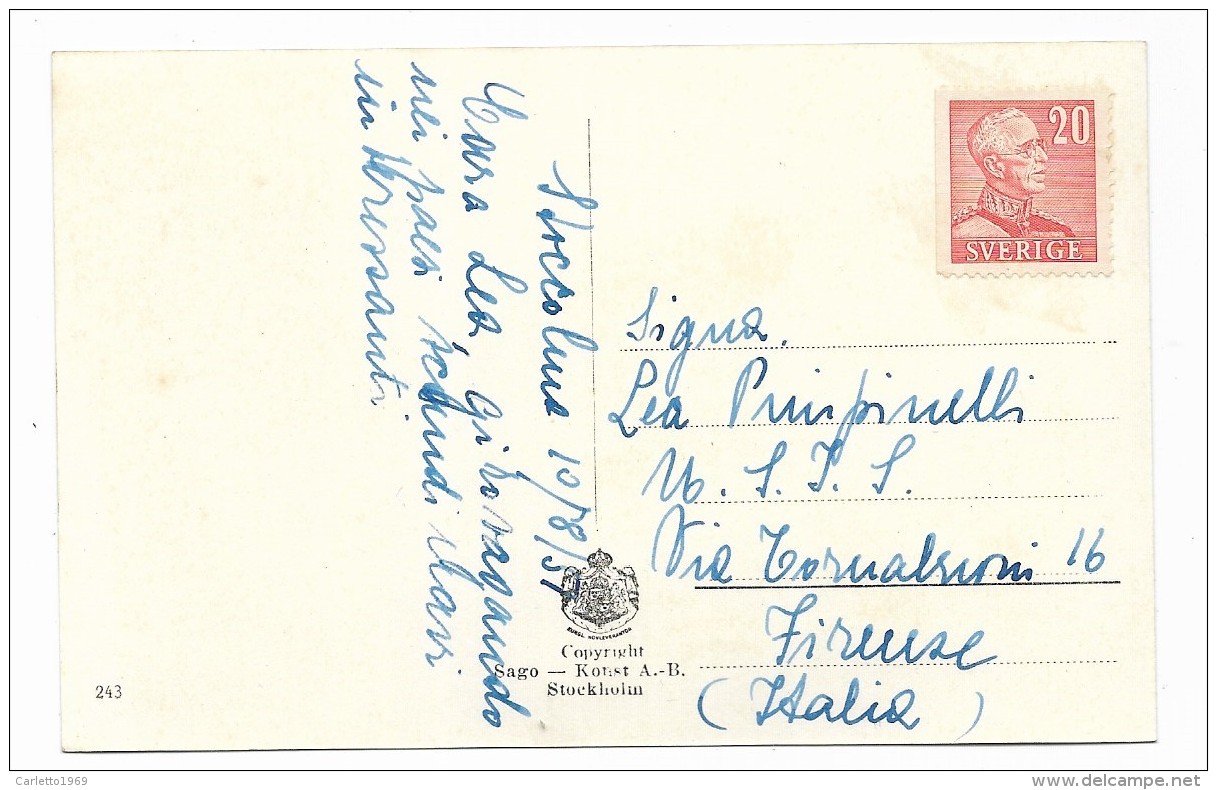 Stoccolma 10/8/51
Cara Lea, Girovagando
nei paesi scandinavi
interessanti
20
SVERIGE
Signa.
Lea Pimpinelli
U. S. I. S.
Via Tornabuoni 16
Firenze
(Italia)
KUNGL. HOVLEVERANTÖR
Copyright
Sago — Konst A.-B.
Stockholm
243
Carletto1969
www.delcampe.net